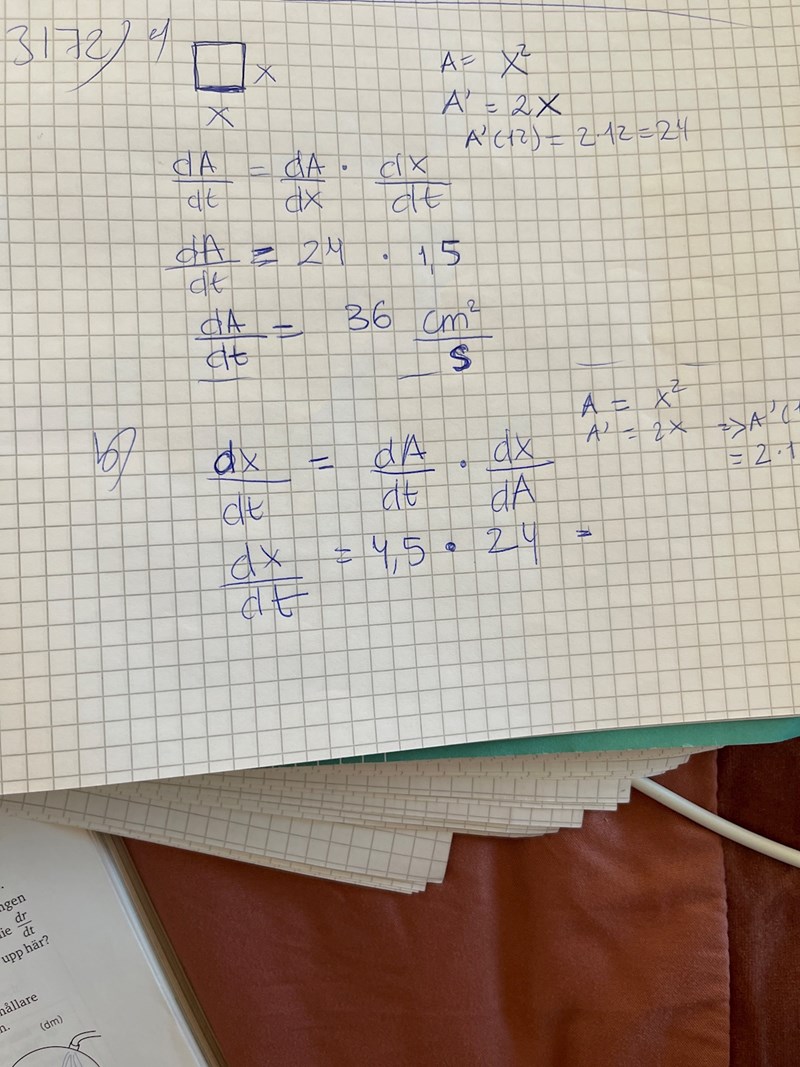 3172) a
x
x
A = x²
A' = 2x
A'(12) = 2·12 = 24
dA/dt = dA/dx · dx/dt
dA/dt = 24 · 1,5
dA/dt = 36 cm²/s
b)
A = x²
A' = 2x => A'(1
= 2·1
dx/dt = dA/dt · dx/dA
dx/dt = 4,5 · 24 =
ngen
dr/dt
upp här?
hållare
n.
(dm)